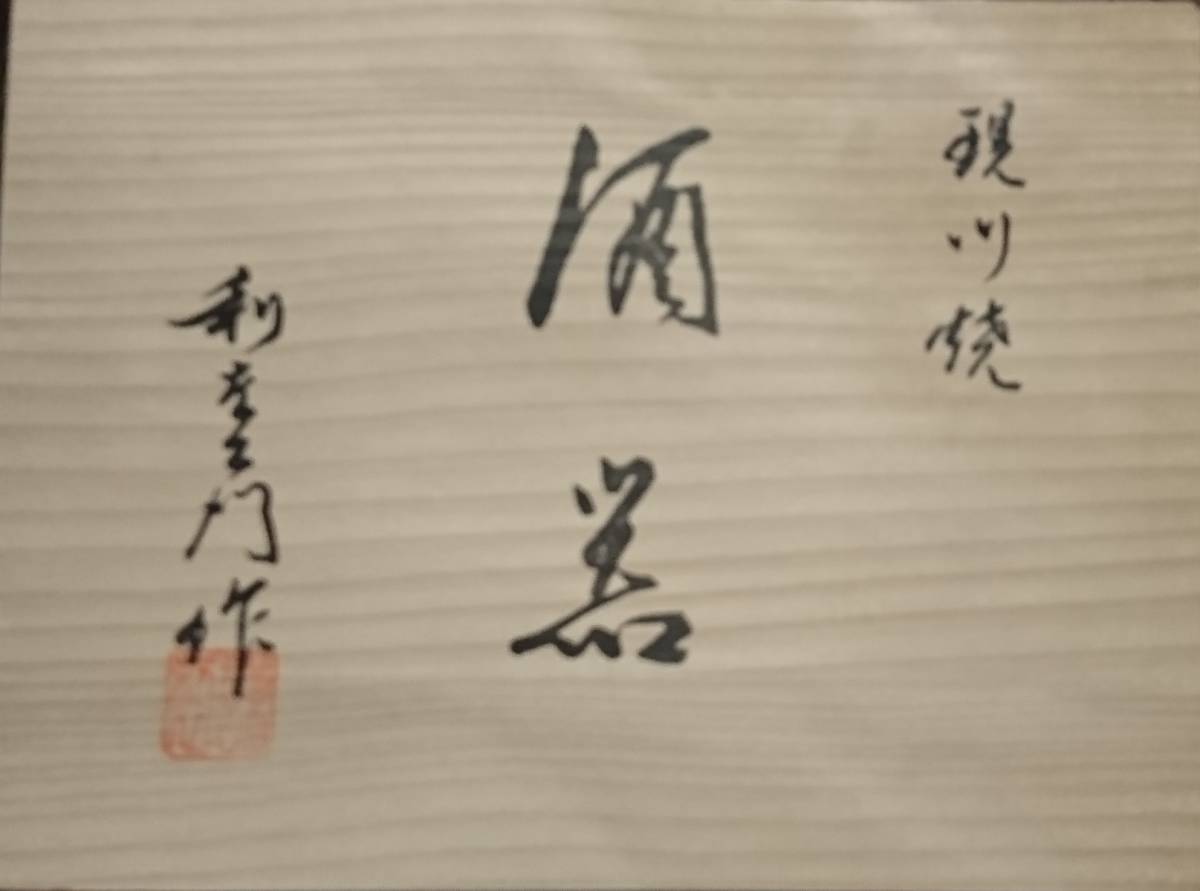 現川焼
酒器
利左エ門作